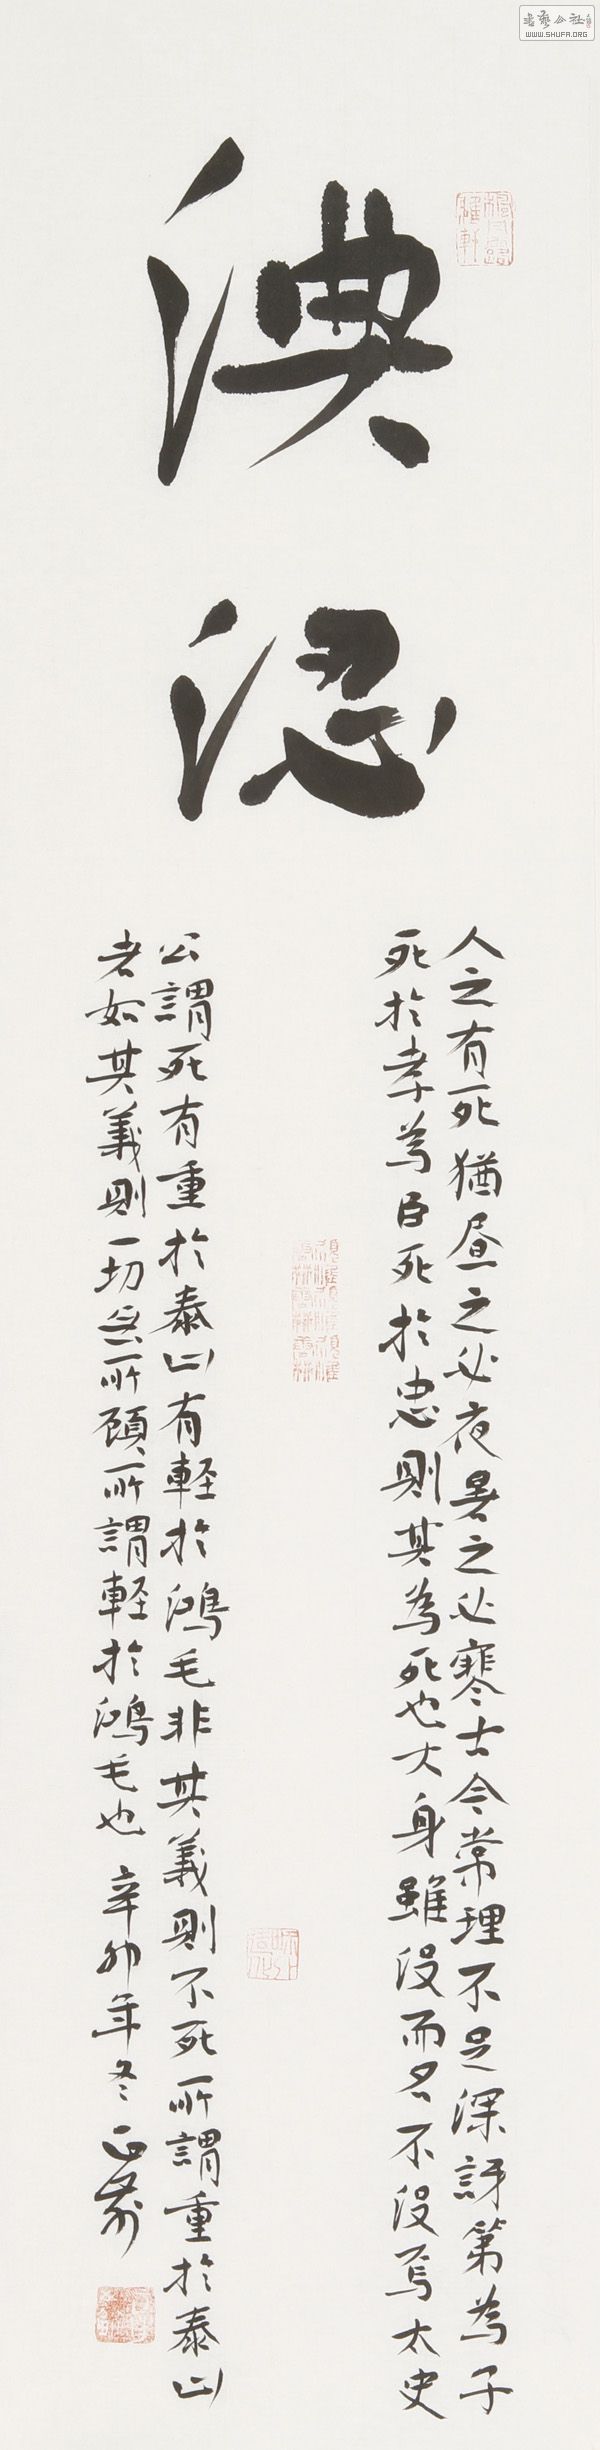 淟涊
人之有死猶昼之必夜暑之必寒古今常理不足深訝第為子
死於孝為臣死於忠則其為死也大身雖没而名不没焉太史
公謂死有重於泰山有軽於鴻毛非其義則不死所謂重於泰山
者如其義則一切無所顧所謂軽於鴻毛也 辛卯年冬
WWW.SHUFA.ORG